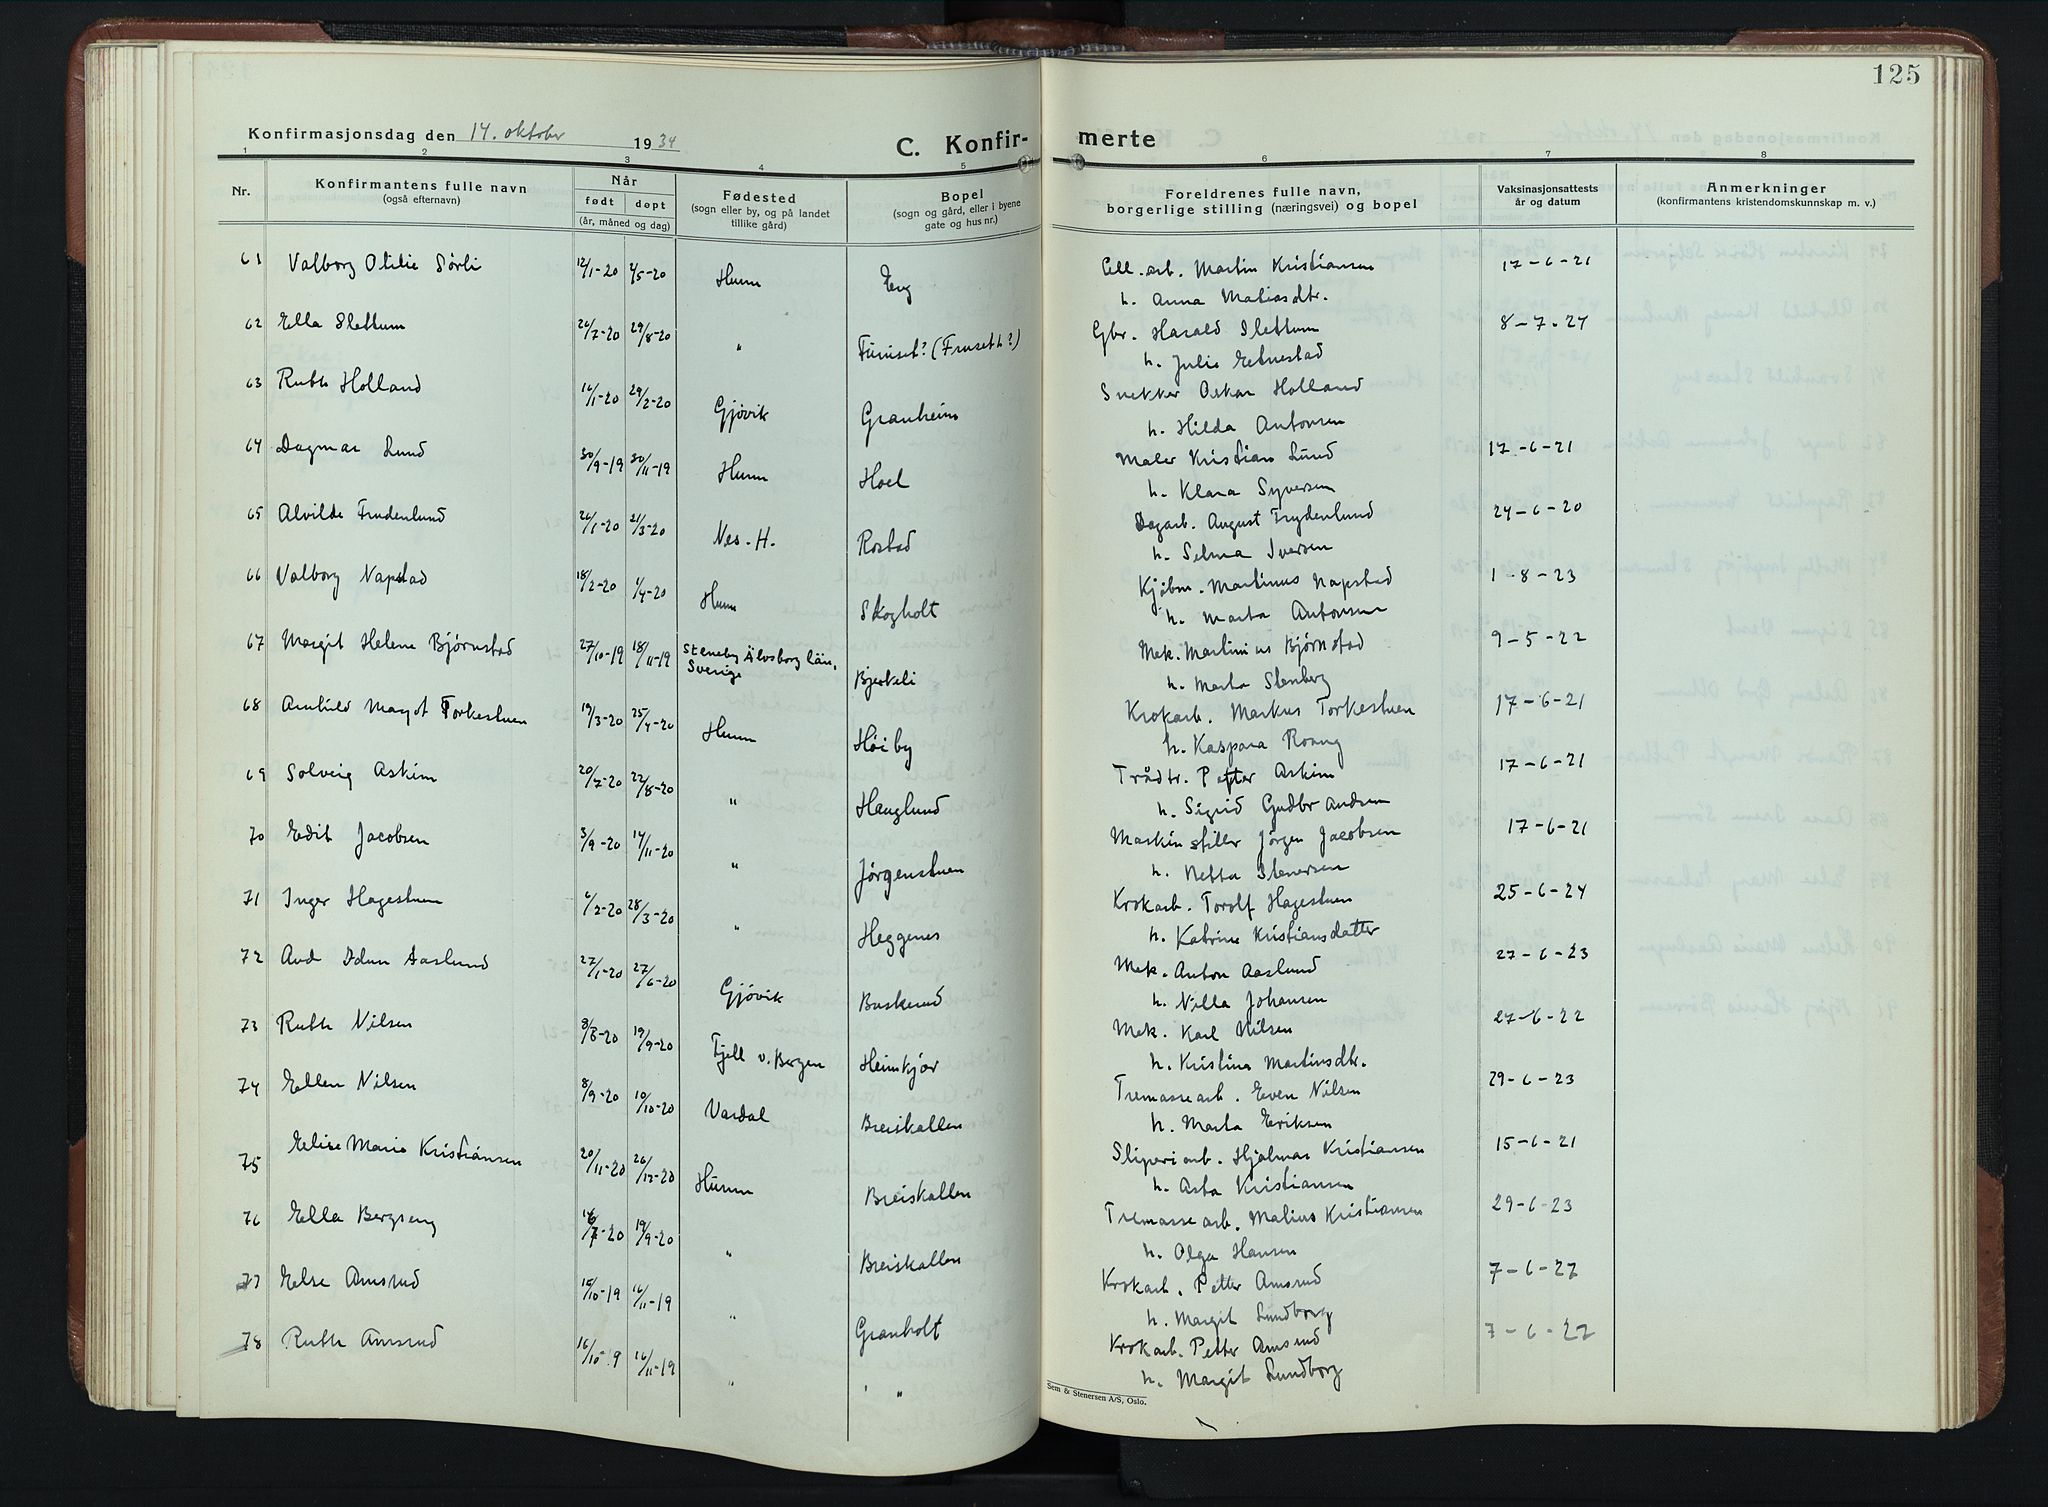 125
Konfirmasjonsdag den 14. oktober 1934
C. Konfir- merte
1 2 3 4 5 6 7 8
Nr.
Konfirmantens fulle navn
(også efternavn)
Når
født døpt
(år, måned og dag)
Fødested
(sogn eller by, og på landet
tillike gård)
Bopel
(sogn og gård, eller i byene
gate og hus nr.)
Foreldrenes fulle navn,
borgerlige stilling (næringsvei) og bopel
Vaksinasjonsattests
år og datum
Anmerkninger
(konfirmantens kristendomskunnskap m. v.)
61 Valborg Otilie Sørli 12/1-20 2/5-20 Hunn Eng Cell. arb. Martin Kristiansen 17-6-21
h. Anna Matiasdtr.
62 Ella Slettum 26/7-20 29/8-20 " Furuset? (Fruseth?) Gbr. Harald Slettum 8-7-24
h. Julie Etnestad
63 Ruth Holland 16/1-20 29/2-20 Gjøvik Granheim Snekker Oskar Holland
h. Hilda Antonsen
64 Dagmar Lund 30/9-19 30/11-19 Hunn Hoel Maler Kristian Lund 17-6-21
h. Klara Syversen
65 Alvilde Frudenlund 26/1-20 21/3-20 Nes. H. Rostad Dagarb. August Frydenlund 24-6-20
h. Selma Iversen
66 Valborg Napstad 18/2-20 1/4-20 Hunn Skogholt Kjøbm. Martinus Napstad 1-8-23
h. Marta Antonsen
67 Margit Helene Bjørnstad 27/10-19 18/11-19 Steneby Älvsborg län, Sverige Bjerkeli Mek. Martinius Bjørnstad 9-5-22
h. Marta Stenberg
68 Arnhild Margot Torkestuen 19/3-20 25/4-20 Hunn Høiby Krokarb. Markus Torkestuen 17-6-21
h. Kaspara Roang
69 Solveig Askim 20/7-20 22/8-20 " Hauglund Trådtr. Petter Askim 17-6-21
h. Sigrid Gudbrandsen
70 Edit Jacobsen 3/9-20 14/11-20 " Jørgenstuen Maskinstiller Jørgen Jacobsen 17-6-21
h. Netta Stenersen
71 Inger Hagestuen 6/2-20 28/3-20 " Heggenes Krokarb. Torolf Hagestuen 25-6-24
h. Katrine Kristiansdatter
72 Aud Idun Aaslund 27/1-20 27/6-20 Gjøvik Buskerud Mek. Anton Aaslund 27-6-23
h. Nilla Johansen
73 Ruth Nilsen 8/8-20 19/9-20 Fjell v. Bergen Heimkjær Mek. Karl Nilsen 27-6-22
h. Kristine Martinsdtr.
74 Ellen Nilsen 8/9-20 10/10-20 Vardal Breiskallen Tremassearb. Even Nilsen 29-6-23
h. Marta Eriksen
75 Elise Marie Kristiansen 20/11-20 26/12-20 Hunn Breiskallen Sliperiarb. Hjalmar Kristiansen 15-6-21
h. Asta Kristiansen
76 Ella Bergseng 16/7-20 19/9-20 " Breiskallen Tremassearb. Matius Kristiansen 29-6-23
h. Olga Hansen
77 Else Amsrud 15/10-19 16/11-19 " Granholt Krokarb. Petter Amsrud 7-6-22
h. Margit Lundborg
78 Ruth Amsrud 16/10-19 16/11-19 " " Krokarb. Petter Amsrud 7-6-22
h. Margit Lundborg
Sem & Stenersen A/S, Oslo.